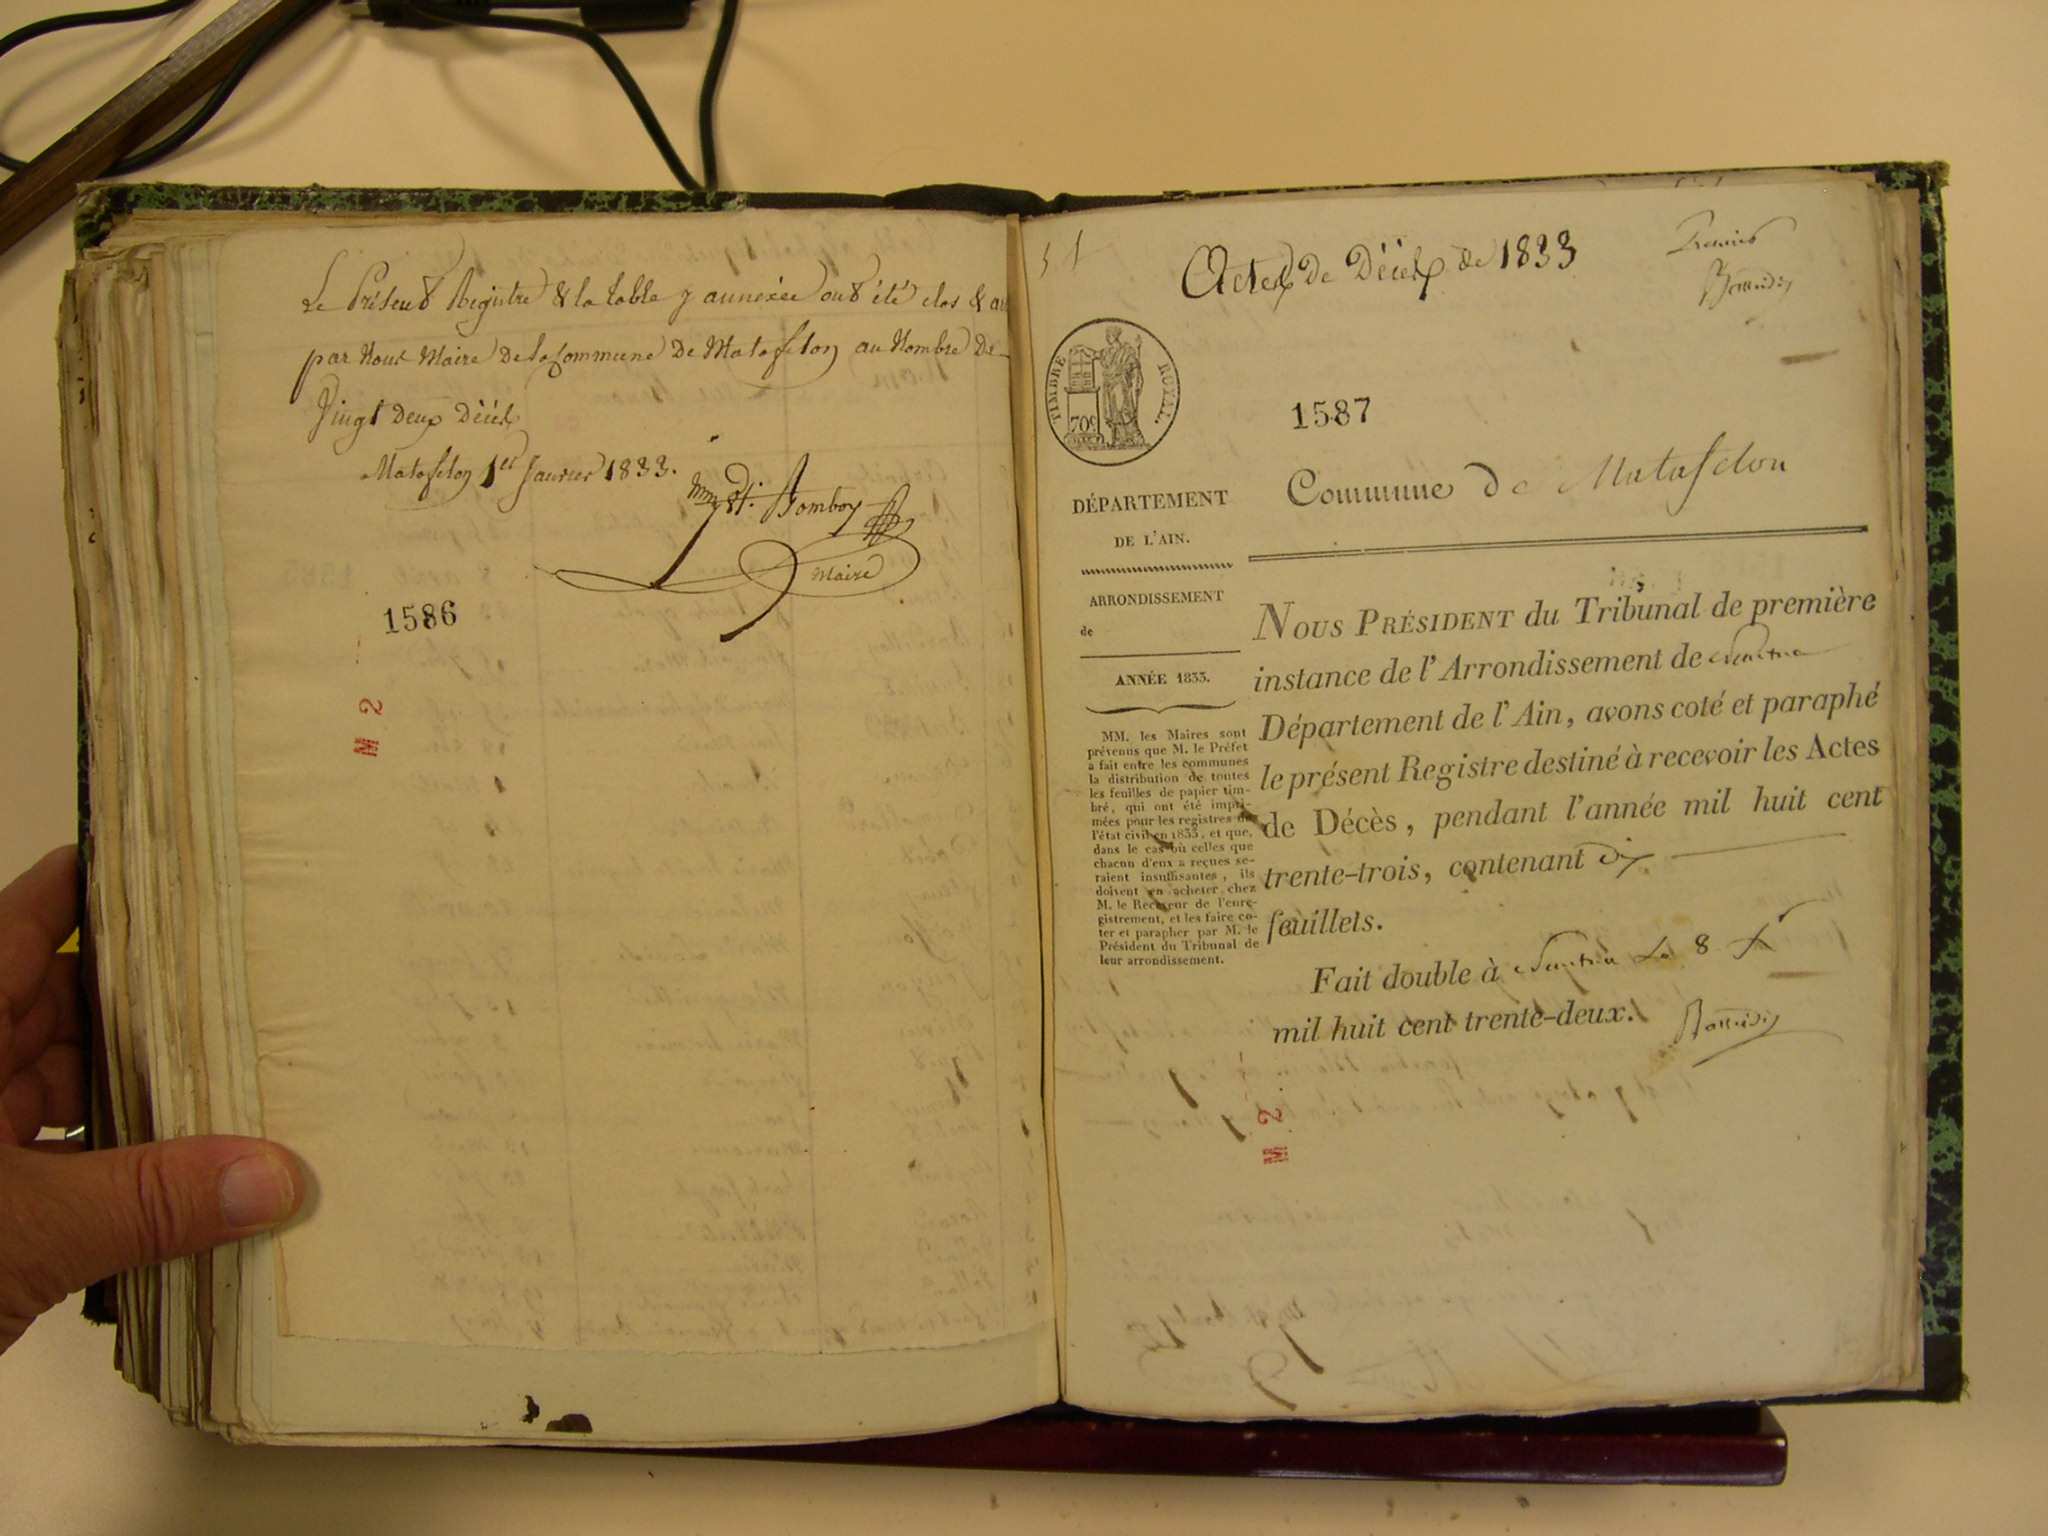 Le Présent Registre & la table y annexée ont été clos &
par Nous Maire De la Commune De Matafelon au Nombre De
Vingt Deux Décès
Matafelon 1er Janvier 1833.
Maire
1586
M 2
Actes De Décès de 1833
Premier
TIMBRE ROYAL.
70c
1587
Commune de Matafelon
DÉPARTEMENT
DE L'AIN.
ARRONDISSEMENT
de
ANNÉE 1833.
MM. les Maires sont
prévenus que M. le Préfet
a fait entre les communes
la distribution de toutes
les feuilles de papier tim-
bré, qui ont été impri-
mées pour les registres de
l'état civil en 1833, et que,
dans le cas où celles que
chacun d'eux a reçues se-
raient insuffisantes, ils
doivent en acheter chez
M. le Receveur de l'enre-
gistrement, et les faire co-
ter et parapher par M. le
Président du Tribunal de
leur arrondissement.
NOUS PRÉSIDENT du Tribunal de première
instance de l'Arrondissement de Nantua
Département de l'Ain, avons coté et paraphé
le présent Registre destiné à recevoir les Actes
de Décès, pendant l'année mil huit cent
trente-trois, contenant dix
feuillets.
Fait double à Nantua Le 8 X
mil huit cent trente-deux.
M 2